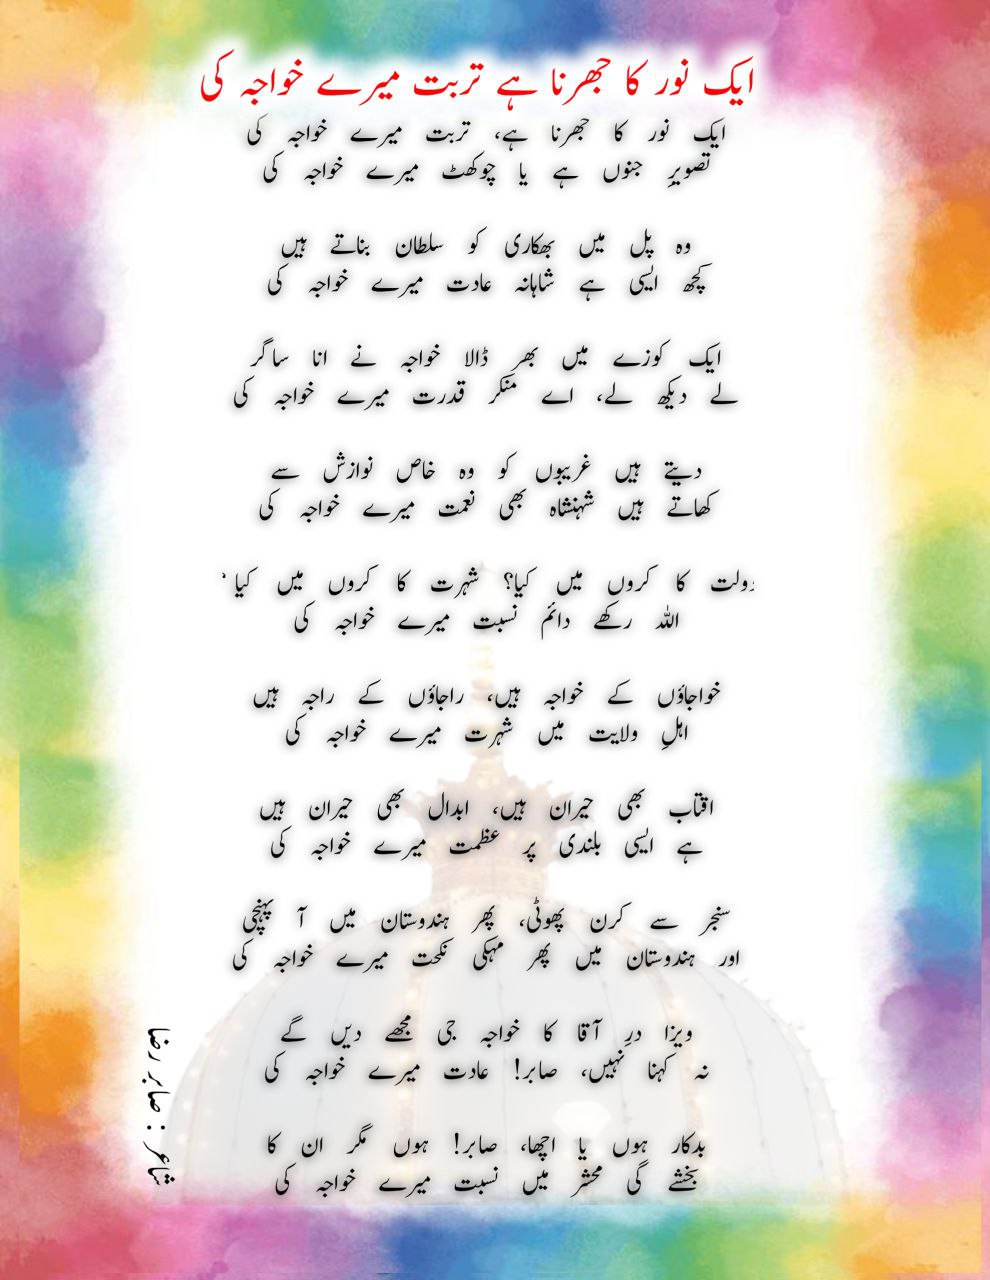 ایک نور کا جھرنا ہے تربت میرے خواجہ کی
ایک نور کا جھرنا ہے، تربت میرے خواجہ کی
تصویرِ جنوں ہے یا چوکھٹ میرے خواجہ کی
وہ پل میں بھکاری کو سلطان بناتے ہیں
کچھ ایسی ہے شاہانہ عادت میرے خواجہ کی
ایک کوزے میں بھر ڈالا خواجہ نے انا ساگر
لے دیکھ لے، اے منکر قدرت میرے خواجہ کی
دیتے ہیں غریبوں کو وہ خاص نوازش سے
کھاتے ہیں شہنشاہ بھی نعمت میرے خواجہ کی
دولت کا کروں میں کیا؟ شہرت کا کروں میں کیا
اللہ رکھے دائم نسبت میرے خواجہ کی
خواجاؤں کے خواجہ ہیں، راجاؤں کے راجہ ہیں
اہلِ ولایت میں شہرت میرے خواجہ کی
اقتاب بھی حیران ہیں، ابدال بھی حیران ہیں
ہے ایسی بلندی پر عظمت میرے خواجہ کی
سنجر سے کرن پھوٹی، پھر ہندوستان میں آ پہنچی
اور ہندوستان میں پھر مہکی نکحت میرے خواجہ کی
ویزا درِ آقا کا خواجہ جی مجھے دیں گے
نہ کہنا نہیں، صابر! عادت میرے خواجہ کی
بدکار ہوں یا اچھا، صابر! ہوں مگر ان کا
بخشے گی محشر میں نسبت میرے خواجہ کی
شاعر : صابر رضا